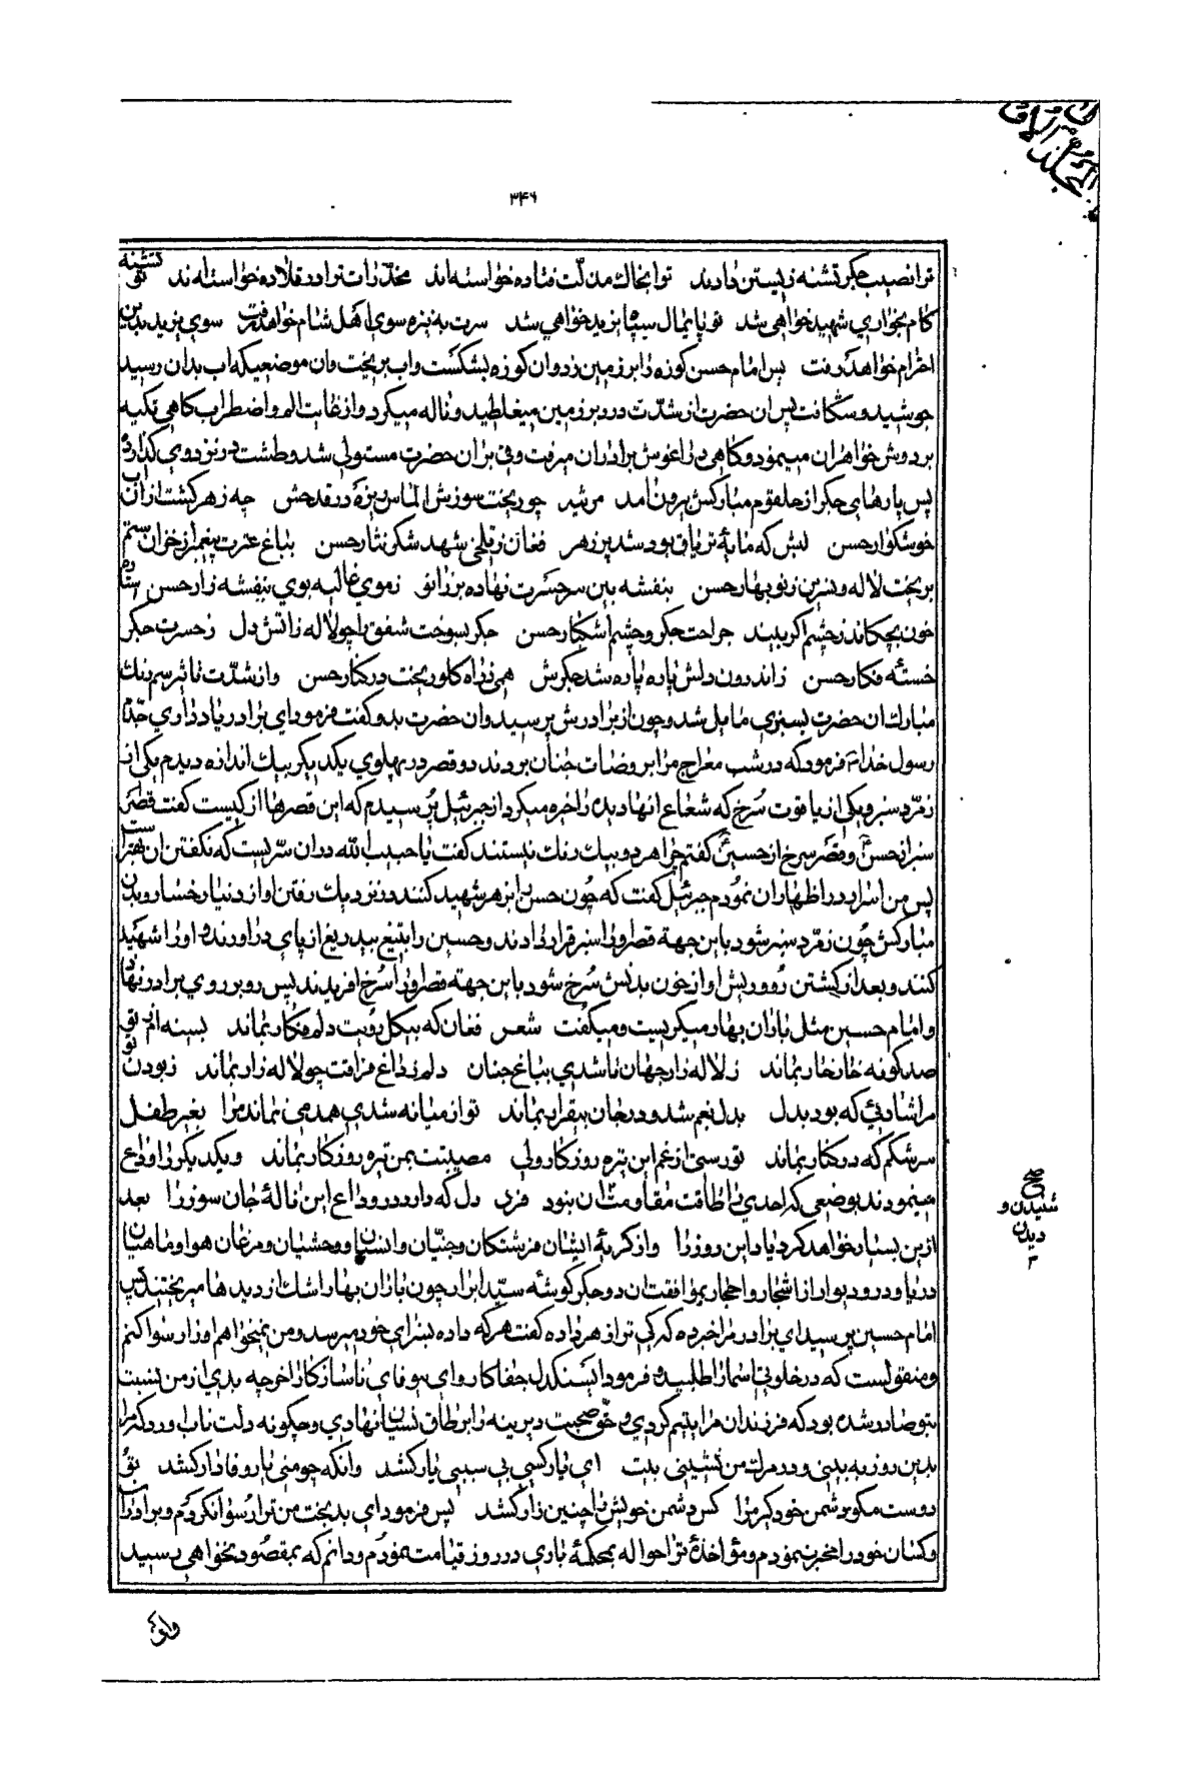 ۳۴۶
ترا نصیب جگر تشنه زیستن دادند توا بخاک مذلّت فتاده خواسته‌اند مخدّرات ترا در قلاده خواسته‌اند تو تشنه
کام بخواری شهید خواهی شد تو پایمال سپاه یزید خواهی شد سرت به نیزه سوی اهل شام خواهد رفت سوی یزید بدین
احترام خواهد رفت پس امام حسن کوزه را بر زمین زد و ان کوزه بشکست و اب بریخت وان موضعیکه اب بدان رسید
جوشید و شکافت پس ان حضرت از شدّت درد بر زمین میغلطید و ناله میکرد و از غایت الم و اضطراب کاهی تکیه
بر دوش خواهران مینمود و کاهی در اغوش برادران میرفت و قی بران حضرت مستولی شد و طشت در نزد وی گذارده
پس پارهای جگر از حلقوم مبارکش بیرون امد مرثیه چو ریخت سوزش الماس ریزه در قدحش چه زهر کشت ازان اب
خوشکوار حسن لبش که مایهٔ تریاق بود شد پر زهر فغان ز تلخی شهد شکر نثار حسن بباغ عترت پیغمبر از خزان ستم
بریخت لاله و نسرین ز نو بهار حسن بنفشه بین سر حسرت نهاده بر زانو ز موی غالیه بوی بنفشه زار حسن ستاره
خون بچکاند ز چشم اکر بیند جراحت جگر و چشم اشکبار حسن جگر بسوخت شفق را چو لاله ز اتش دل ز حسرت جگر
خستهٔ فکار حسن ز اندرون دلش پاره پاره شد جگرش همی ز راه کلو ریخت در کنار حسن و از شدّت تاثیر سم رنک
مبارک ان حضرت بسبزی مایل شد و چون از برادرش پرسید وان حضرت بدو کفت فرمود ای برادر یاد داری حدّنا
رسول خدا ص فرمود که در شب معراج مرا بروضات جنان بردند دو قصر در پهلوی یکدیگر بیک اندازه دیدم یکی از
زمرّد سبز و یکی از یاقوت سُرخ که شعاع انها دیده را خیره میکرد از جبرئیل پُرسیدم که این قصرها از کیست کفت قصر
سبز از حسنؑ و قصر سرخ از حسینؑ کفتم چرا هر دو بیک رنک نیستند کفت یا حبیب الله دران سرّیست که نکفتن ان بهتر است
پس من اصرار در اظهار ان نمودم جبرئیل کفت که چُون حسن را بزهر شهید کنند در نزدیک رفتن او از دنیا رخسار و بدن
مبارکش چُون زمرّد سبز شود باین جهة قصر او را سبز قرار دادند و حسین را بتیغ بیدریغ از پای دراورند و او را شهید
کنند و بعد از کشتن رُو و ریش او از خون بدنش سُرخ شود باین جهة قصر او را سُرخ افریدند پس رو بر روی برادر نهاد
و امام حسین مثل باران بهار میکریست و میکفت شعر فغان که بیکل رویت دلم فکار بماند بسینه ام ز تو
صد کونه خار خار بماند ز لاله زار جهان تا شدی بباغ جنان دلم ز داغ فراقت چو لاله زار بماند ز بودن تو
مرا شادئی که بود بدل بدل بغم شد و در جان بیقرار بماند تو از میانه شدی همدمی نماند مرا بغیر طفل
سرشکم که در کنار بماند تو رستی از غم این تیره روزکار ولی مصیبتت بمن تیره روزکار بماند و یکدیکر را وداع
مینمودند بوضعی که احدی را طاقت مقاومت ان نبود فرد دل که دارد در وداع این نالهٔ جان سوز را بعد
ازین بسیار خواهد کرد یاد این روز را و از کریهٔ ایشان فرشتکان و جنیّان و انسیان و وحشیان و مرغان هوا و ماهیان
دریا و در و دیوار از اشجار و احجار بموافقت ان دو جکر کوشه سیّد ابرار چون باران بهار اشک از دیدها میریختند پس
امام حسین پرسید ای برادر مرا خبر ده که کی ترا زهر داده کفت هر که داده بسزای خود میرسد و من نمیخواهم او را رسوا کنم
و منقولست که در خلوتی اسما را طلبیده فرمود ای سنکدل جفاکار و ای بیوفای ناسازکار اخر چه بدی از من نسبت
بتو صادر شده بود که فرزندان مرا یتیم کردی و حقّ صحبت دیرینه را بر طاق نسیان نهادی و چکونه دلت تاب اورد که مرا
بدین روز به بینی و در مرک من نشینی بیت ای یار کسی بی سببی یار کشد وانکه چو منی یار وفادار کشد تو
دوست مکو دشمن خود کیر مرا کس دشمن خویش را چنین زار کشد پس فرمود ای بدبخت من ترا رُسوا نکردم و برادران
و کسان خود را مخبر ننمودم و مؤاخذهٔ ترا حواله بمحکمهٔ باری در روز قیامت نمودم و دانم که بمقصُود نخواهی رسید
صح
شنیدن و
دیدن
۳